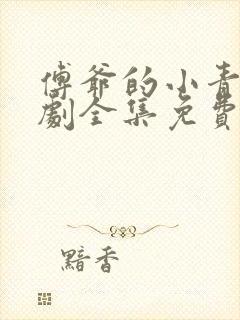 傅爷的小青
劇全集免費
黯香